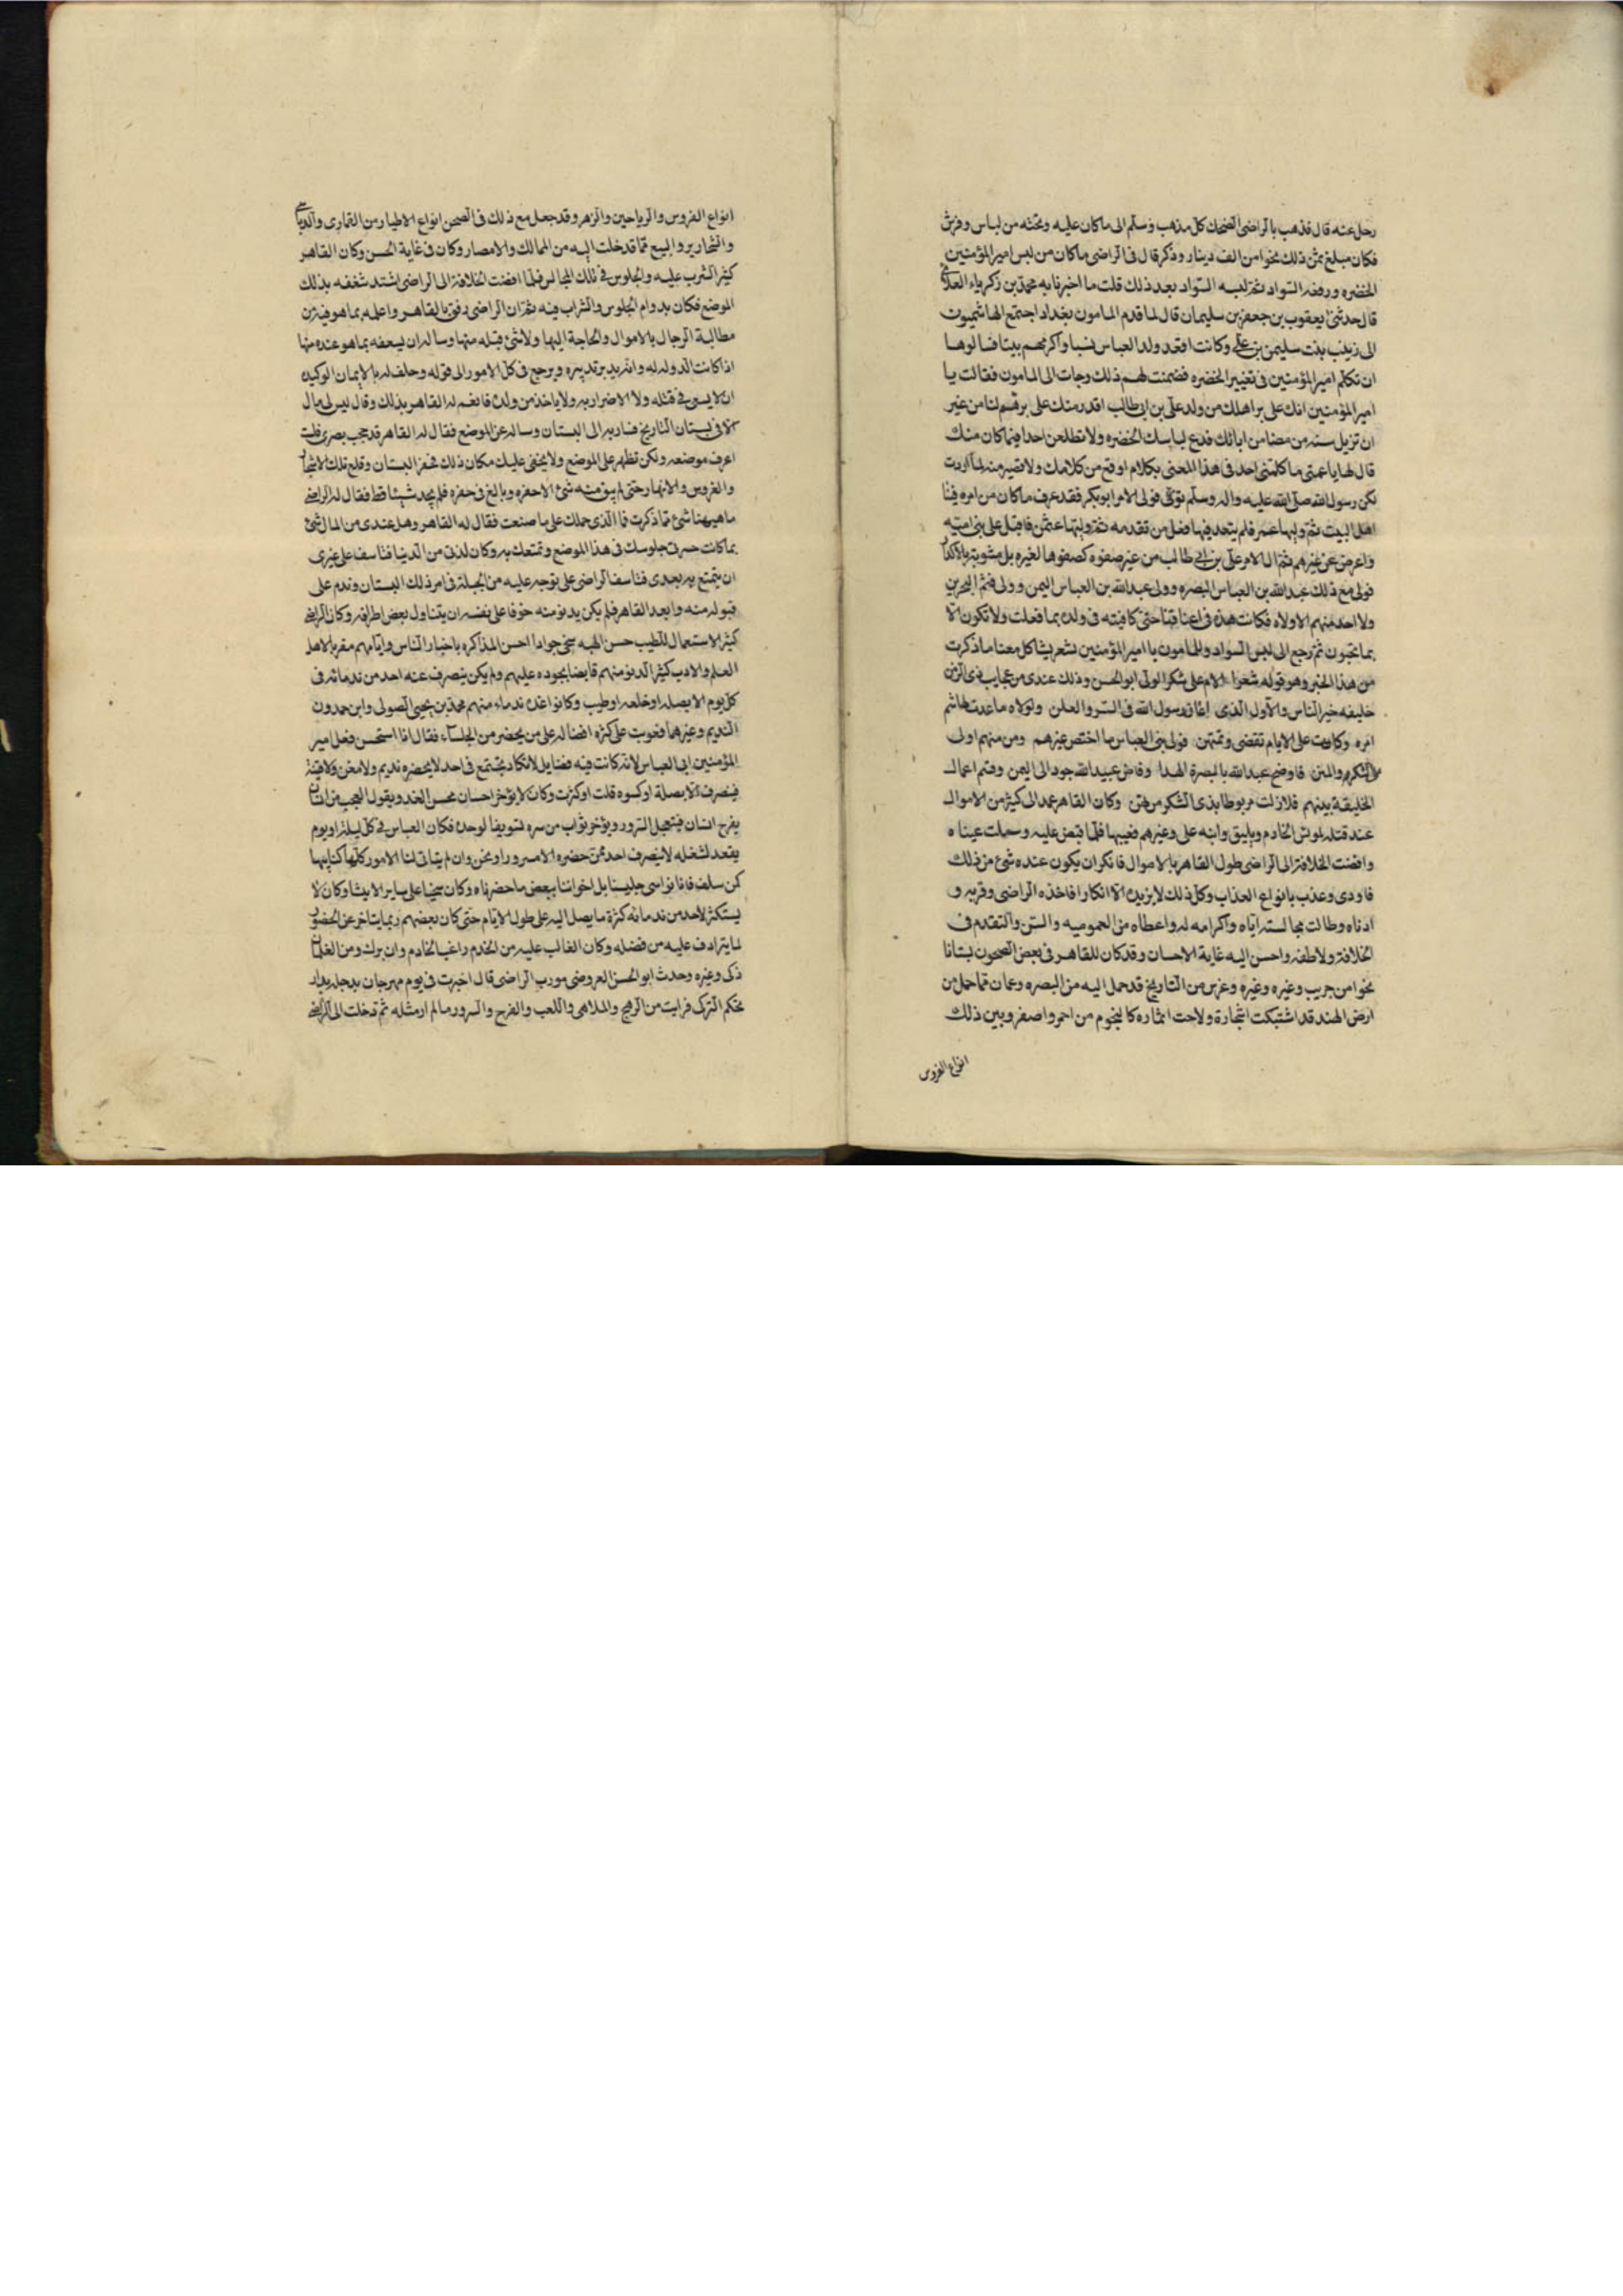 رحل عنه قال فذهب بالراضى الضحك كل مذهب وسلم الى ماكان عليه وتحته من لباس وفرش
فكان مبلغ ثمن ذلك نحوا من الف دينار وذكر قال فى الراضى ماكان من لبس امير المؤمنين
الخضره ورفضه السواد ثم لبسه السواد بعد ذلك قلت ما اخبرنا به محمد بن زكرياء العلائى
قال حدثنى يعقوب بن جعفر بن سليمان قال لما قدم المامون بغداد اجتمع الهاشميون
الى زينب بنت سليمن بن على وكانت اقعد ولد العباس نسبا واكرمهم بيتا فسالوها
ان تكلم امير المؤمنين فى تغيير الخضره فضمنت لهم ذلك وجات الى المامون فقالت يا
امير المؤمنين انك على بر اهلك من ولد على بن ابى طالب اقدر منك على برهم لنا من غير
ان تزيل سنه من مضا من ابائك فدع لباسك الخضره ولا تطلعن احدا فيما كان منك
قال لها يا عمتى ما كلمنى احد فى هذا المعنى بكلام اوقع من كلامك ولا قصير منه لما اردت
لكن رسول الله صلى الله عليه واله وسلم توفى فولى الامر ابو بكر فقد عرف ما كان من امره فينا
اهل البيت ثم وليها عمر فلم يتعد فيها فعل من تقدمه ثم وليها عثمن فاقبل على بنى اميه
واعرض عن غيرهم ثم ال الامر على بن ابى طالب من غير صفوه كصفوها لغيره بل مشوبة بالاكدار
فولى مع ذلك عبد الله بن العباس البصره وولى عبد الله بن العباس اليمن وولى قثم البحرين
ولا احد منهم الا ولاه فكانت هذه فى اعناقنا حتى كافيته فى ولده بما فعلت ولا تكون الا
بما تحبون ثم رجع الى لبس السواد وللمامون يا امير المؤمنين شعر يشاكل معنا ما ذكرت
من هذا الخبر وهو قوله شعرا الام على شكر الولى ابو الحسن وذلك عندى من عجايب ذى الزمن
خليفه خير الناس والاول الذى اعان رسول الله فى السر والعلن ولولاه ما عدت لهاشم
امره وكانت على الايام تقضى وتمتهن فولى بنى العباس ما اختص غيرهم ومن منهم اولى
بالتكرم والمنن فاوضح عبد الله بالبصرة الهدا وفاض عبيد الله جودا الى اليمن وقسم اعمال
الخليفة بينهم فلا زلت مربوطا بذى الشكر مرتهن وكان القاهر عمد الى كثير من الاموال
عند قتله لمونس الخادم وبليق وابنه على وغيرهم فغيبها فلما قبض عليه وسملت عيناه
وافضت الخلافة الى الراضى طول القاهر بالاموال فانكر ان يكون عنده شئ من ذلك
فاودى وعذب بانواع العذاب وكل ذلك لا يزيده الا انكارا فاخذه الراضى وقربه و
ادناه وطالت مجالسته اياه واكرامه له واعطاه من العموميه والسن والتقدم فى
الخلافة ولاطفه واحسن اليه غاية الاحسان وقد كان للقاهر فى بعض الصحون بستانا
نحوا من جريب وغيره وغيره وغرس من التاريخ قد حمل اليه من البصره وعمان مما حمل من
ارض الهند قد اشتبكت اشجارة ولاحت اثماره كالنجوم من احمر واصفر وبين ذلك
انواع الغروس
انواع الغروس والرياحين والزهر وقد جعل مع ذلك فى الصحن انواع الاطيار من القمارى والدباسى
والشحارير والببغ مما قد خلت اليه من الممالك والامصار وكان فى غاية الحسن وكان القاهر
كثير الشرب عليه والجلوس فى تلك المجالس فلما افضت الخلافة الى الراضى اشتد شغفه بذلك
الموضع فكان بدوام الجلوس والشراب فيه ثم ان الراضى رفق بالقاهر واعلمه بما هو فيه من
مطالبة الرجال بالاموال والحاجة اليها ولا شئ قبله منها وساله ان يسعفه بما هو عنده منها
اذا كانت الدوله له وانه يدبر تدبيره ويرجع فى كل الامور الى قوله وحلف له بالايمان الوكيده
ان لا يسعى فى قتله ولا الاضرار به ولا ياخذ من ولده فانعم له القاهر بذلك وقال ليس لى مال
الا فى بستان التاريخ فسار به الى البستان وساله عن الموضع فقال له القاهر قد حجب بصرى فلست
اعرف موضعه ولكن تظهر على الموضع ولا يخفى عليك مكان ذلك فحفر البستان وقلع تلك الاشجار
والغروس والانهار حتى لم يبق منه شئ الا حفره وبالغ فى حفره فلم يجد شيئا قط فقال له الراضى
ما هيهنا شئ مما ذكرت فما الذى حملك على ما صنعت فقال له القاهر وهل عندى من المال شئ
بما كانت حسرتى جلوسك فى هذا الموضع وتمتعك به وكان لذتى من الدنيا فتاسف على غيرى
ان يتمتع به بعدى فتاسف الراضى على توجه عليه من الحيلة فى امر ذلك البستان وندم على
قبوله منه وابعد القاهر فلم يكن يدنو منه خوفا على نفسه ان يتناول بعض اطرافه وكان الراضى
كثير الاستعمال للطيب حسن الهيه سخى جوادا احسن المذاكره باخبار الناس وايامهم مقربا لاهل
العلم والادب كثير الدنو منهم قابضا بجوده عليهم ولم يكن يتصرف عنه احد من ندمائه فى
كل يوم الا بصلة او خلعه او طيب وكانوا عدة ندماء منهم محمد بن يحيى الصولى وابن حمدون
النديم وغيرهما فعوتب على كثره افضاله على من يحضر من الجلساء فقال انا استحسن فعل امير
المؤمنين ابى العباس لانه كانت فيه فضايل لا تكاد تجتمع فى احد لا يحضره نديم ولا مغن ولا قينة
فينصرف الا بصلة او كسوه قلت او كثرت وكان لا يؤخر احسان محسن الغد ويقول العجب من انسان
يفرح انسان فيتعجل السرور ويؤخر ثواب من سره تسويفا لوحده فكان العباس فى كل ليلة او يوم
يقعد لشغله لا ينصرف احد ممن حضره الا مسرورا ونحن وان لم يتاتى لنا الامور كلها كتاتيها
لمن سلف فانا نواسى جليسنا بل اخواننا ببعض ما حضرناه وكان سخيا على ساير الاشيا وكان لا
يستكثر لاحد من ندمائه كثرة ما يصل اليه على طول الايام حتى كان بعضهم ربما يتاخر عن الحضور
لما يترادف عليه من فضله وكان الغالب عليه من الخدم راغب الخادم وان برك ومن الغلمان
ذكى وغيره وحدث ابو الحسن العروضى مورب الراضى قال اخبرت فى يوم مهرجان بدجله بدار
بحكم التركى فرايت من الرهج والملاهى واللعب والفرح والسرور ما لم ار مثله ثم دخلت الى الراضى